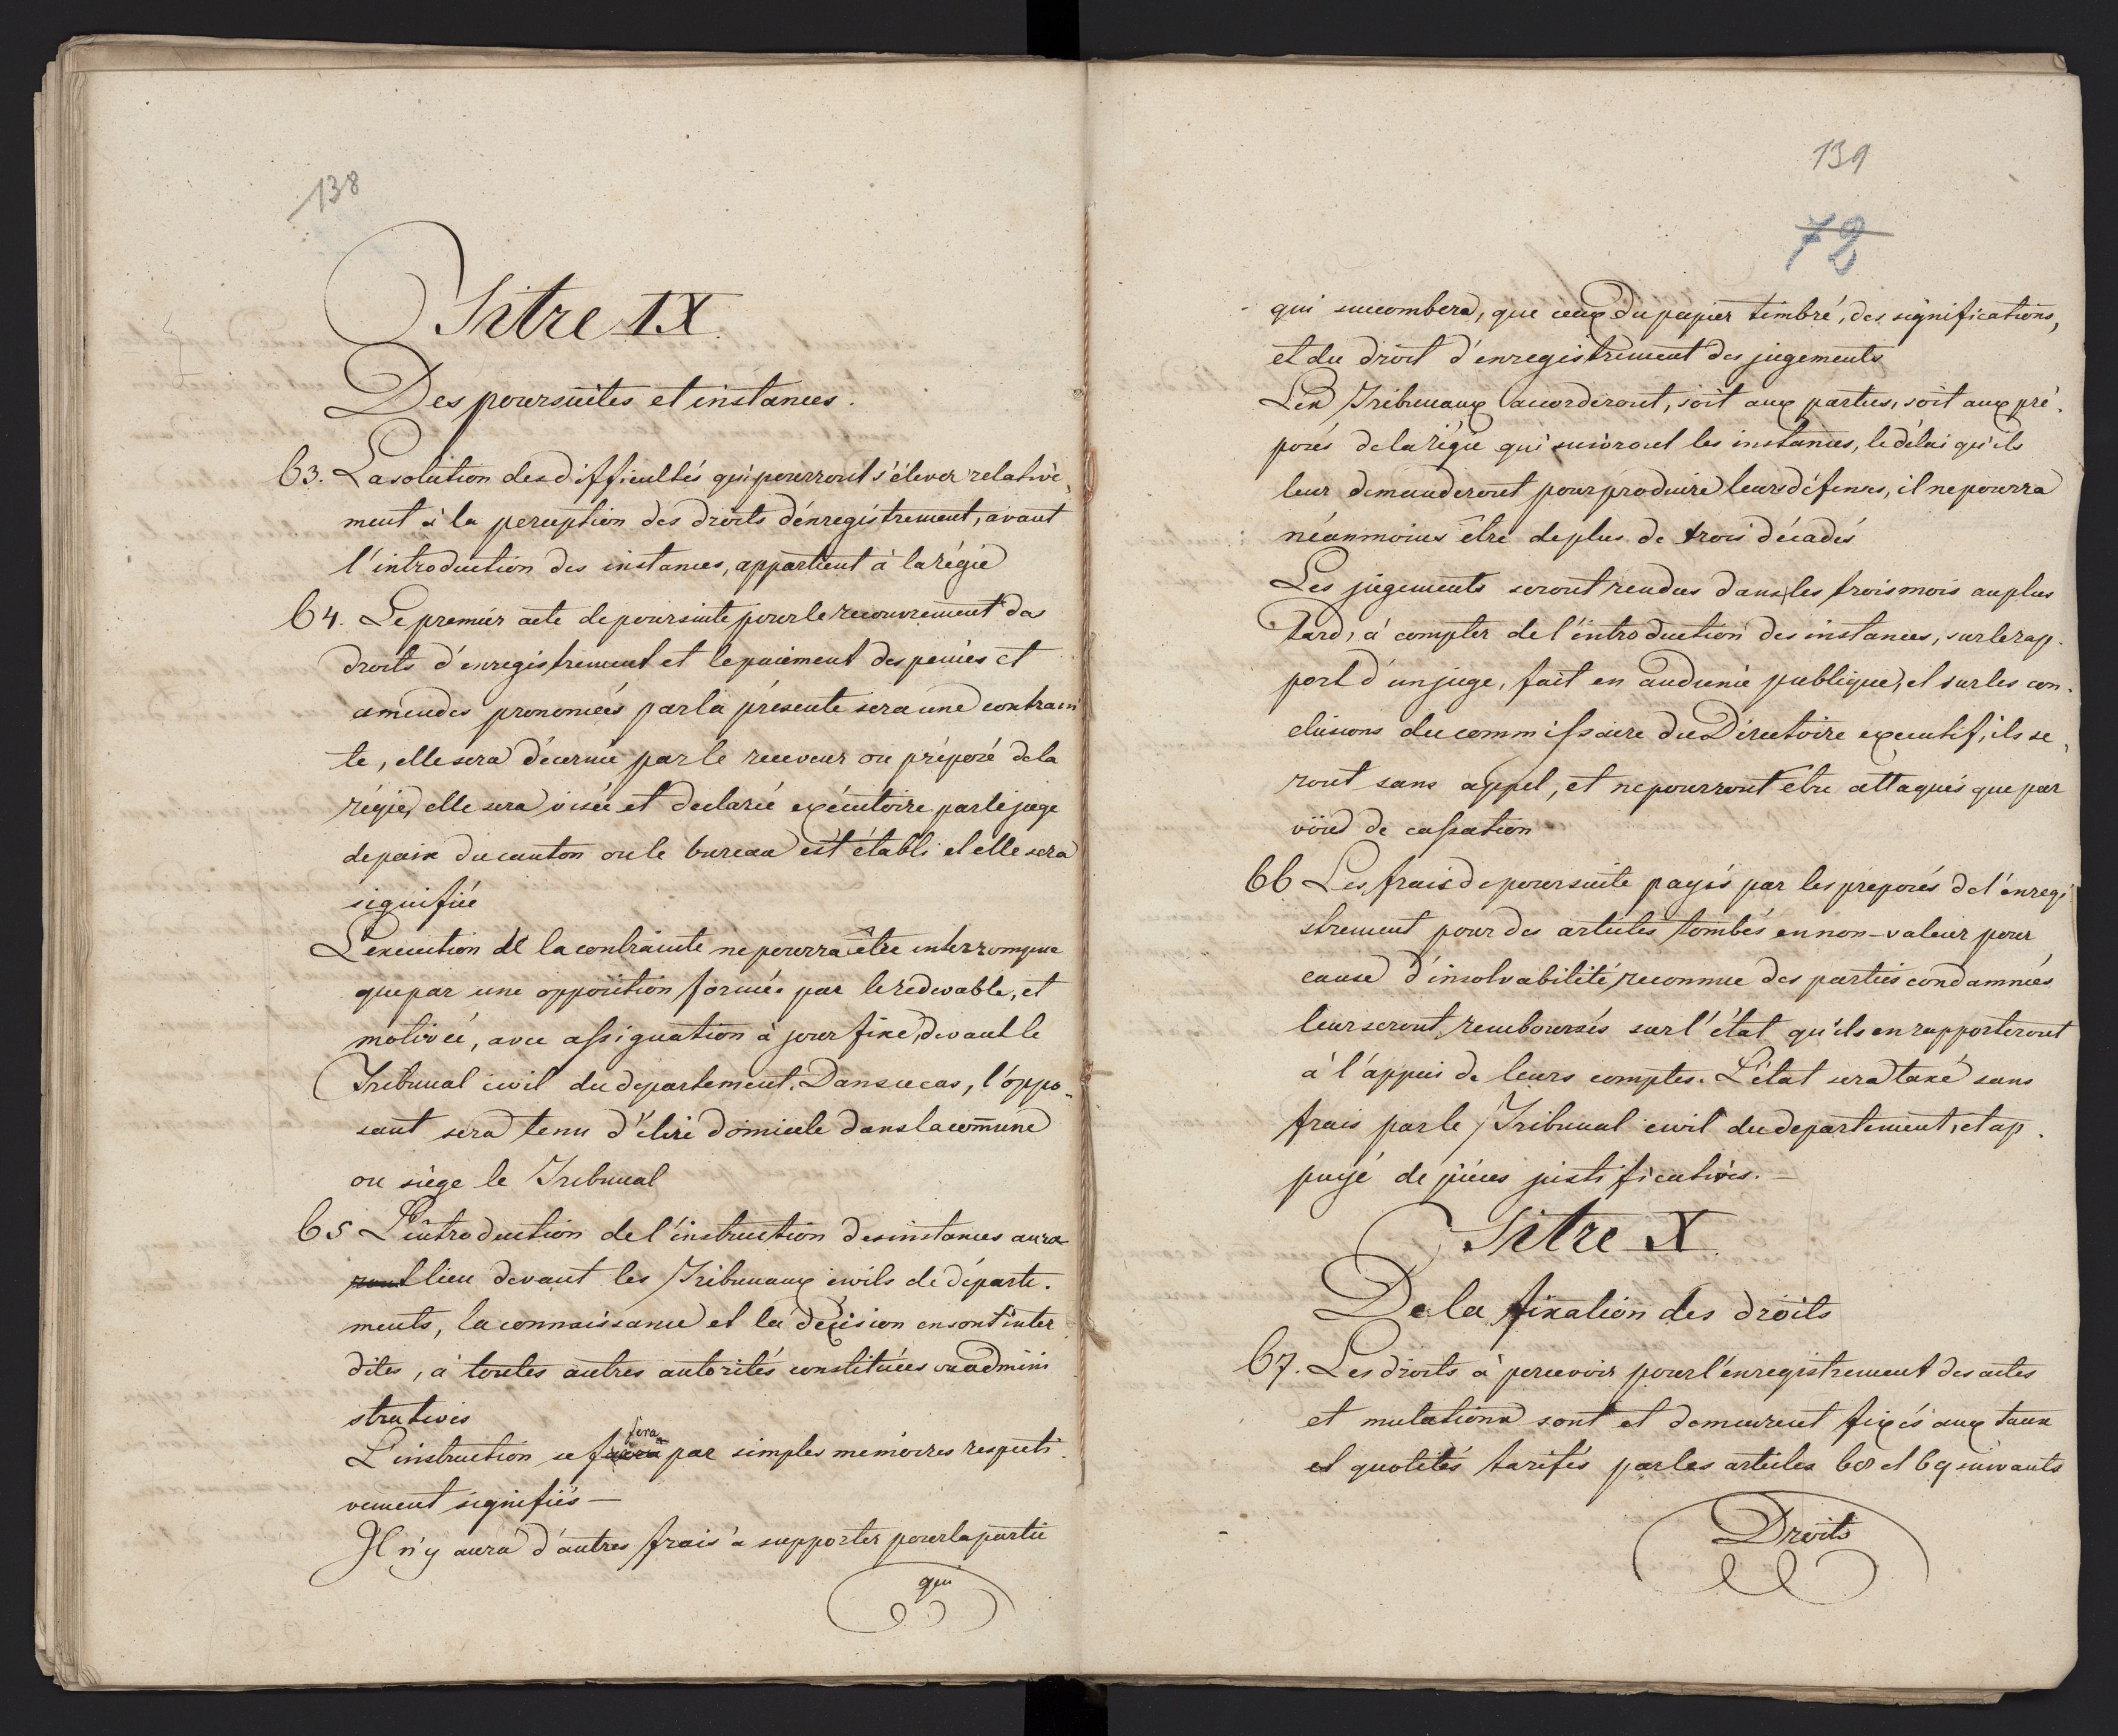 138
Titre IX
Des poursuites et instances.
63. La solution des difficultés qui pourront s'élever relative,
ment à la perception des droits d'enregistrement, avant
l'introduction des instances, appartient à la régie
64. Le premier acte de poursuite pour le recouvrement des
droits d'enregistrement et le paiement des peines et
amendes prononcées par la présente sera une contrain
te, elle sera décernée par le receveur ou préposé de la
régie, elle sera visée et declarée exécutoire par le juge
de paix du canton ou le bureau est établi et elle sera
signifiée
L'execution de la contrainte ne pourra être interrompue
que par une opposition formée par le redevable, et
motivée, avec assignation à jour fixe, devant le
Tribunal civil du departement. Dans ce cas, l'oppo-
sant sera tenu d'élire domicile dans la com̄une
ou siège le Tribunal
65 L'introduction de l'instruction des instances aura
ront lieu devant les Tribunaux civils de départe.
ments, la connaissance et la décision en sont inter
dites, à toutes autres autorités constituées ou admini
stratives
fera
L'instruction se par simples memoires respecti.
vement signifiés —
Il n'y aura d'autres frais à supporter pour la partie
qui
139
72
qui succombera, que ceux du papier timbré, des significations,
et du droit d'enregistrement des jugements
Les Tribunaux accorderont, soit aux parties, soit aux pré.
posés de la régie qui suivront les instances, le délai qu'ils
leur demanderont pour produire leurs défenses, il ne pourra
néanmoins être de plus de trois décades
Les jugements seront rendus dans les trois mois au plus
tard, à compter de l'introduction des instances, sur le rap.
port d'un juge, fait en audience publique, et sur les con.
clusions du commissaire du Directoire executif, ils se,
ront sans appel, et ne pourront être attaqués que par
voie de cassation
66 Les frais de poursuite payés par les preposés de l'enregi
strement pour des articles tombés en non-valeur pour
cause d'insolvabilité reconnue des parties condamnées
leur seront remboursés sur l'état qu'ils en rapporteront
à l'appui de leurs comptes. L'état sera taxé sans
frais par le Tribunal civil du departement, et ap.
puyé de pièces justificatives. —
Titre X
De la fixation des droits
67. Les droits à percevoir pour l'enregistrement des actes
et mutations sont et demeurent fixés aux taux
et quotités tarifés par les articles 68 et 69 suivants
Droits